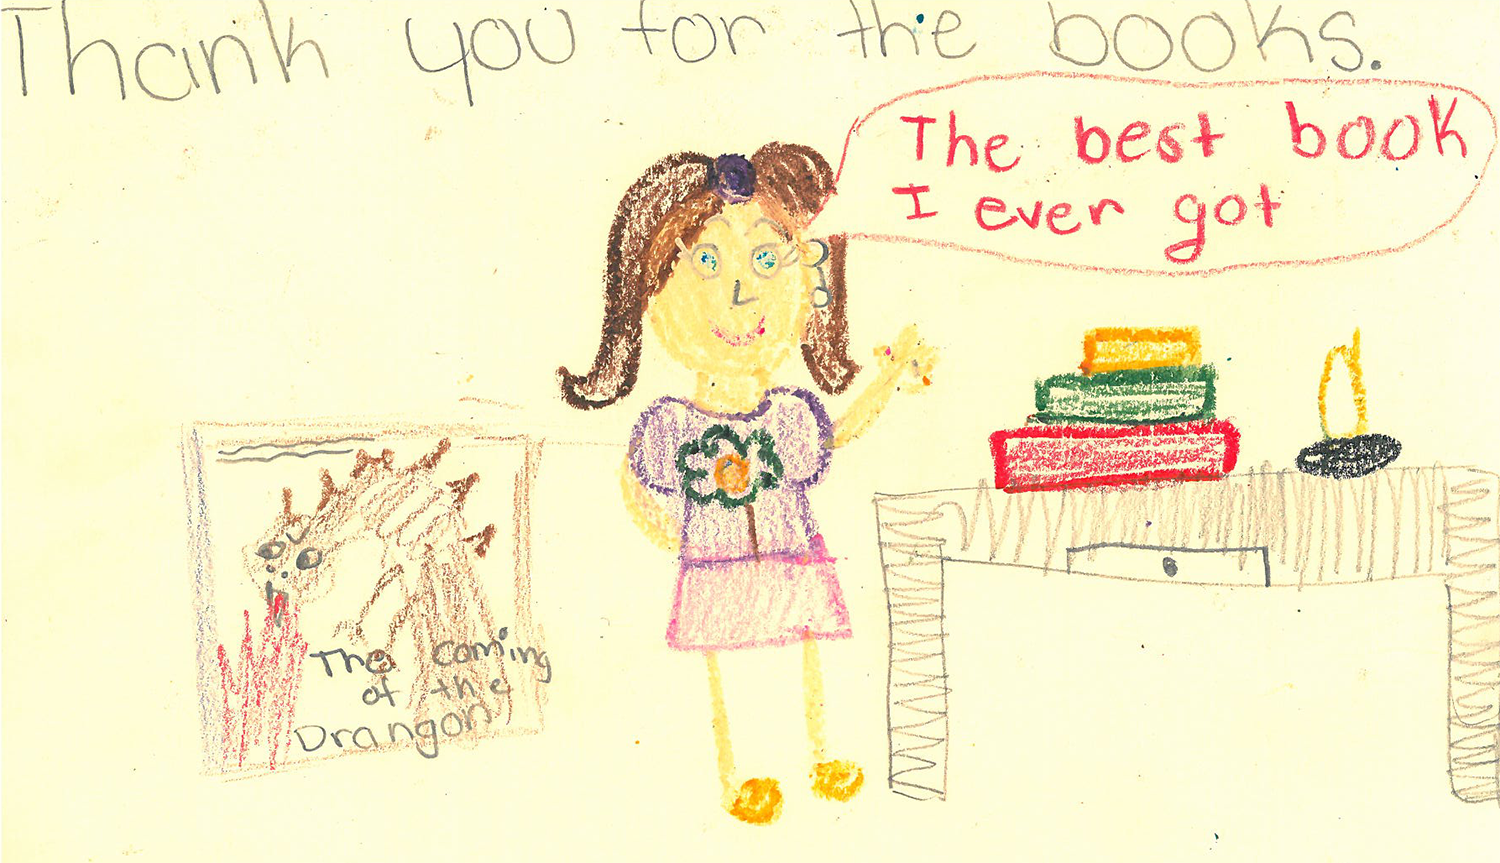 Thank you for the books.
The best book
I ever got
The coming
of the
Drangon